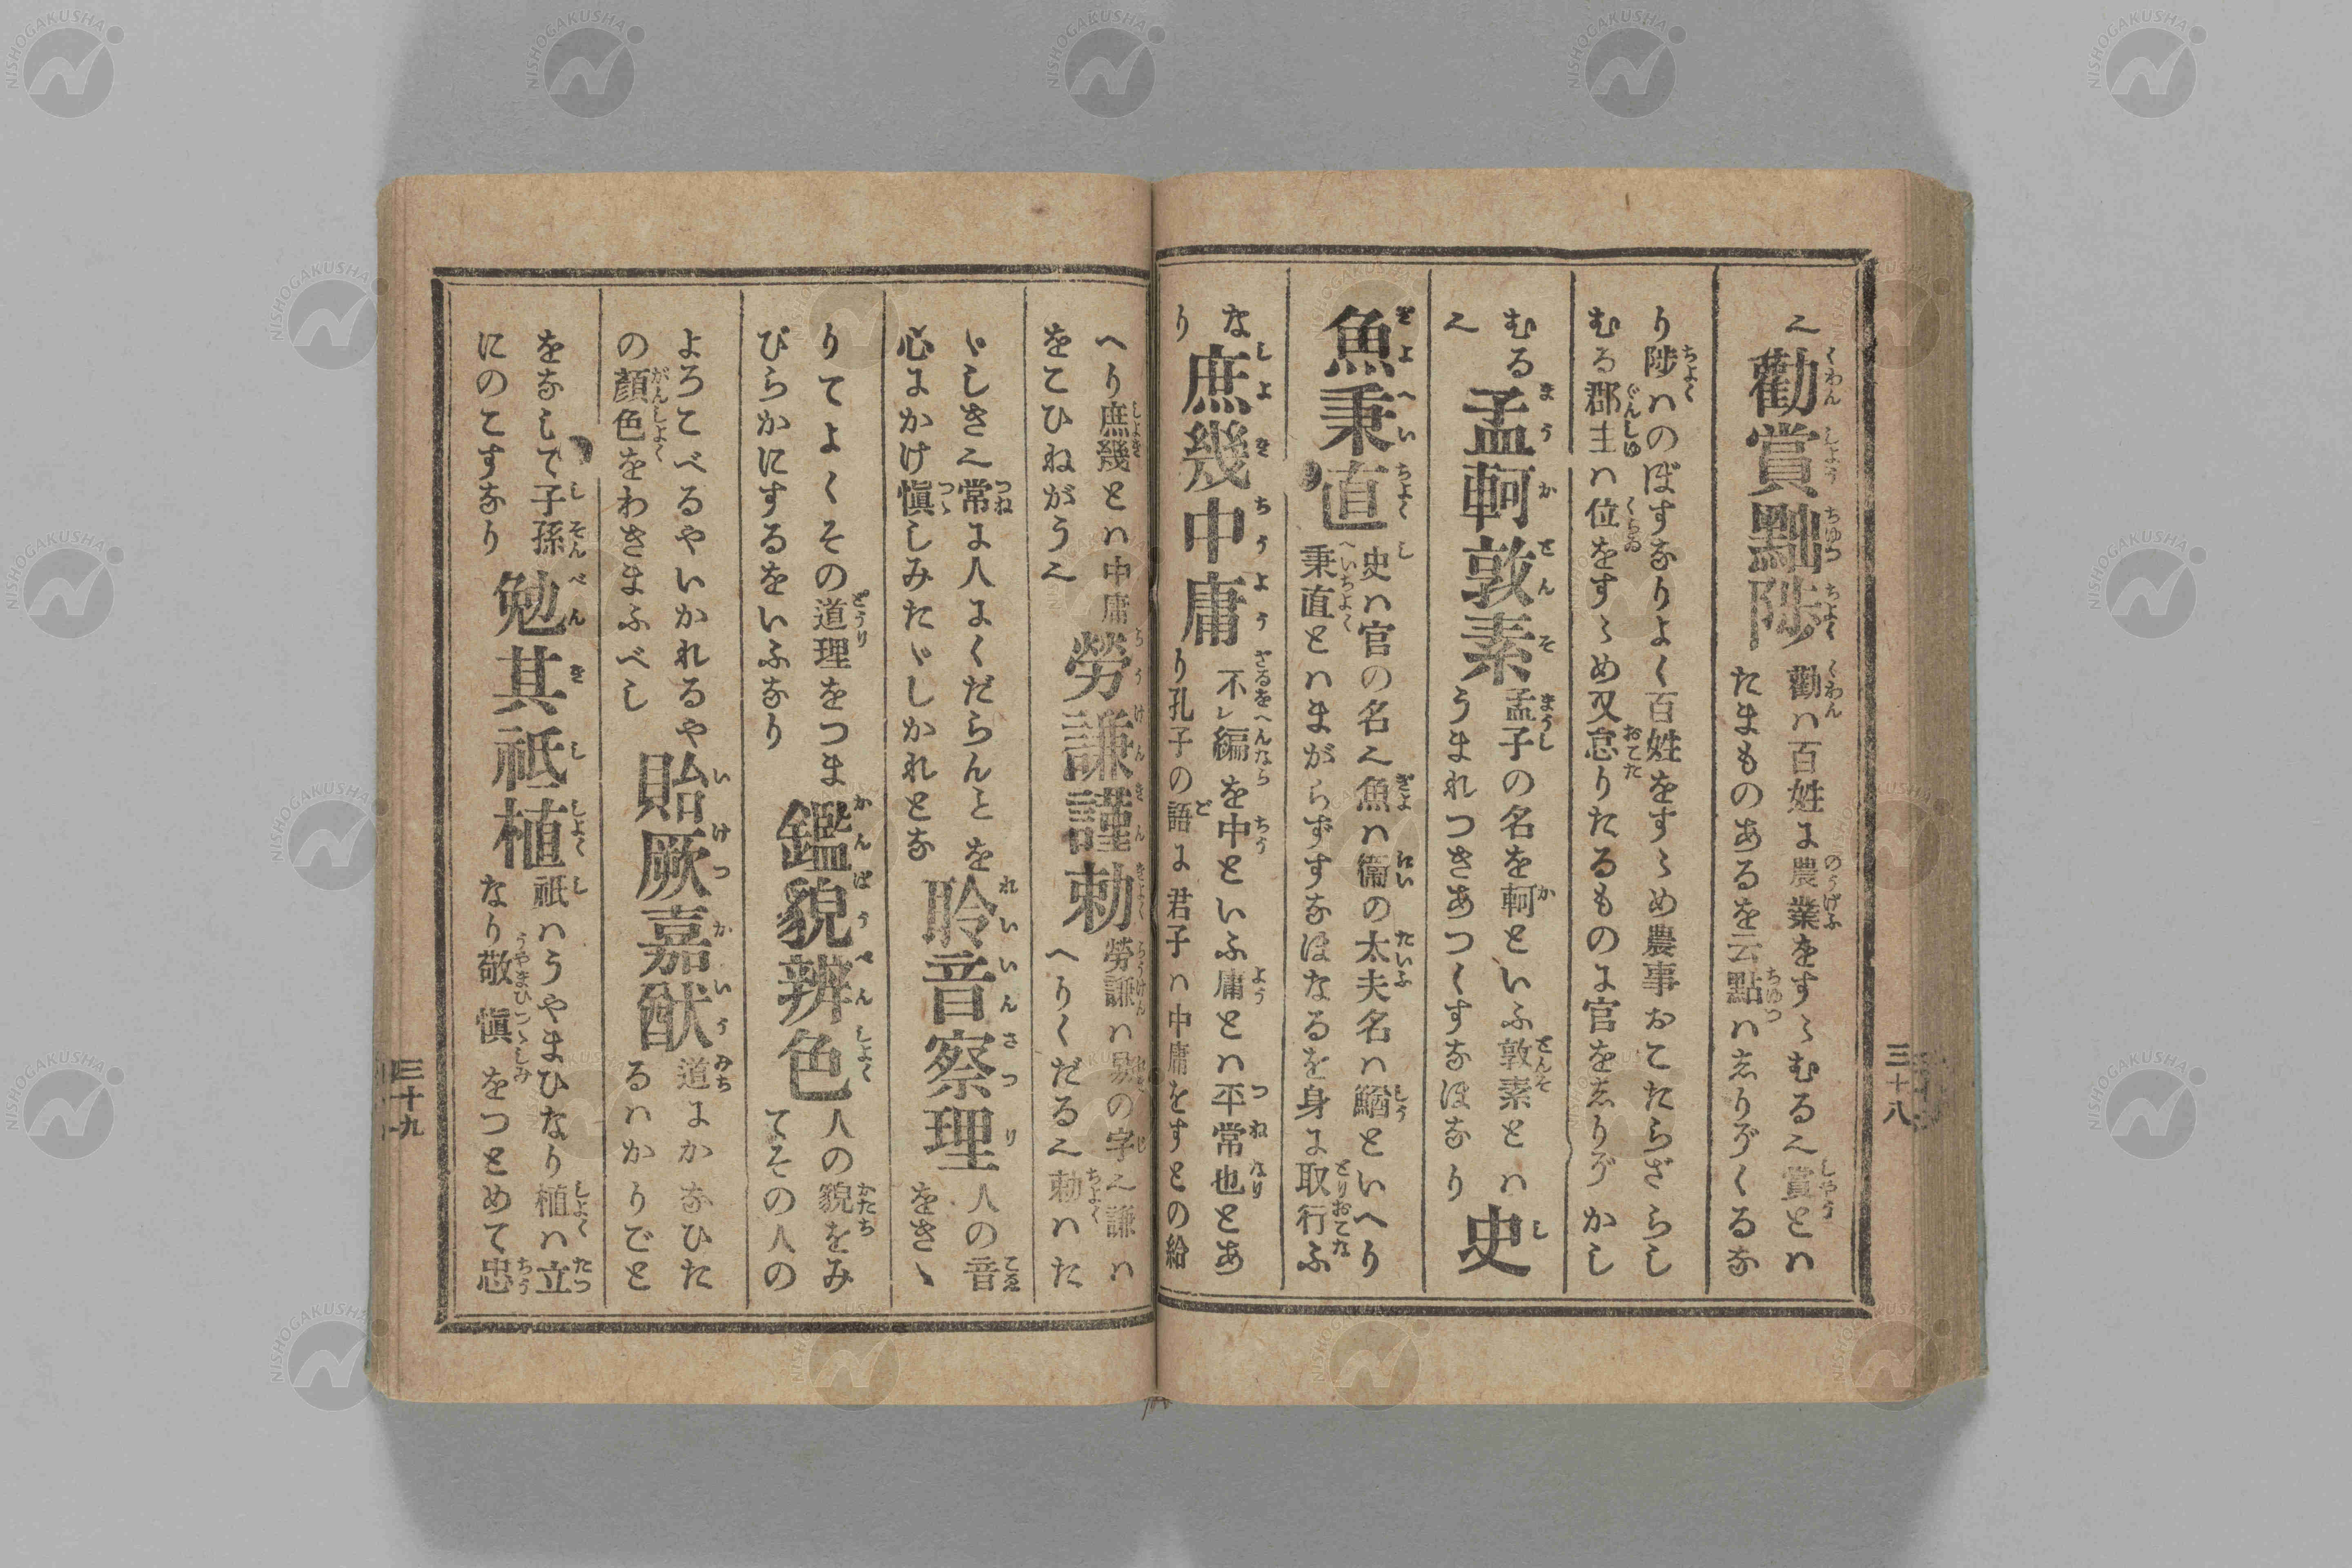 勸賞黜陟
勸ハ百姓に農業をすゝむる也賞とハ
たまものあるを云點ハしりぞくるな
り陟ハのぼすなりよく百姓をすゝめ農事おこたらざらし
むる郡主ハ位をすゝめ又怠りたるものに官をしりぞかし
むる
也
孟軻敦素
孟子の名を軻といふ敦素とハ
うまれつきあつくすなほなり
史
魚秉直
史ハ官の名也魚ハ衞の太夫名ハ鰌といへり
秉直とハまがらずすなほなるを身に取行ふ
な
り
庶幾中庸
不レ編を中といふ庸とハ平常也とあ
り孔子の語に君子ハ中庸をすとの給
へり庶幾とハ中庸
をこひねがう也
勞謙謹勅
勞謙ハ易の字也謙ハ
へりくだる也勅ハた
ゞしき也常に人にくだらんとを
心にかけ愼しみたゞしかれとな
聆音察理
人の音
をきゝ
りてよくその道理をつま
びらかにするをいふなり
鑑貌辨色
人の貌をみ
てその人の
よろこべるやいかれるや
の顏色をわきまふべし
貽厥嘉猷
道にかなひた
るハかりごと
をなしで子孫
にのこすなり
勉其祗植
祗ハうやまひなり植ハ立
なり敬愼をつとめて忠
三十八
三十九
NISHOGAKUSHA